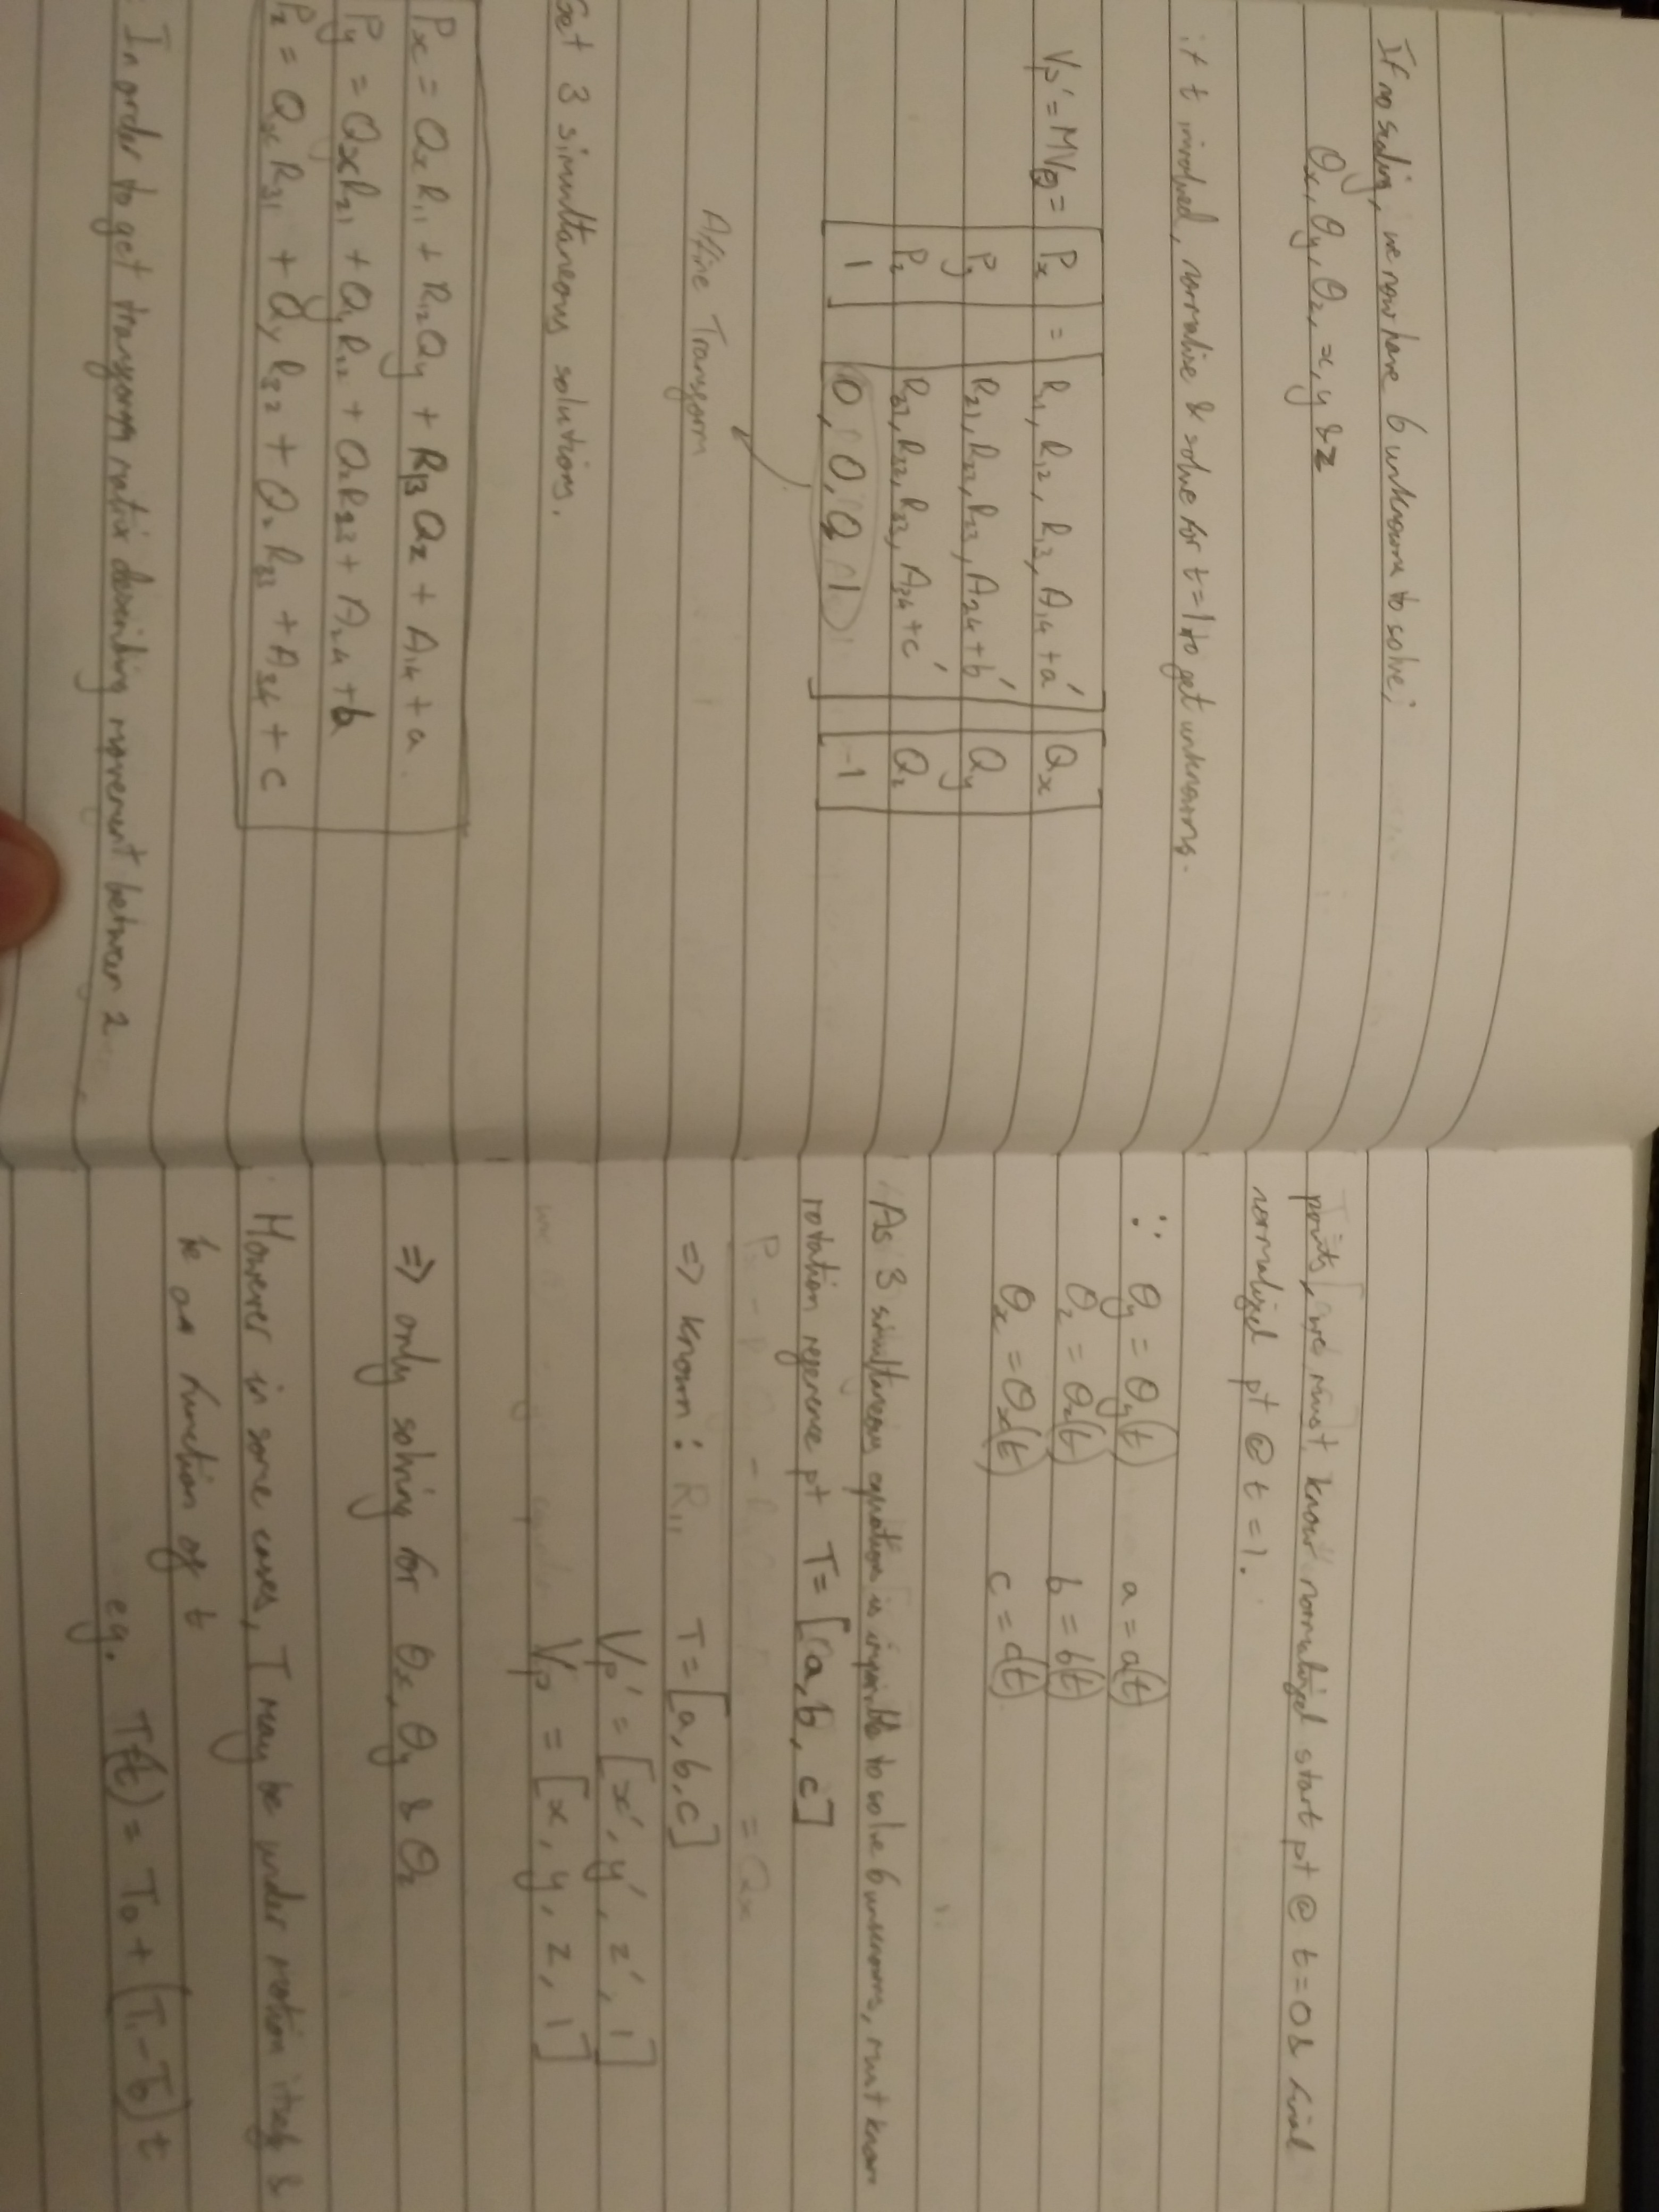 If no scaling, we now have 6 unknowns to solve;
θx, θy, θz, x, y & z
if t involved, normalise & solve for t=1 to get unknowns.
Vp' = MVQ = [Px = [R11, R12, R13, A14 + a' [Qx
Py R21, R22, R23, A24 + b' Qy
Pz R31, R32, R33, A34 + c' Qz
1] 0, 0, 0, 1] 1]
Affine Transform
Get 3 simultaneous solutions.
Px = QxR11 + R12Qy + R13Qz + A14 + a
Py = QxR21 + QyR22 + QzR23 + A24 + b
Pz = QxR31 + QyR32 + QzR33 + A34 + c
In order to get transform matrix describing movement between 2
points, we must know normalized start pt @ t=0 & final
normalized pt @ t=1.
∵ θy = θy(t) a = a(t)
θz = θz(t) b = b(t)
θx = θx(t) c = c(t)
As 3 simultaneous equations is impossible to solve 6 unknowns, must know
rotation reference pt T = [a, b, c]
= Qx
=> known: R11 T = [a, b, c]
Vp' = [x', y', z', 1]
Vp = [x, y, z, 1]
=> only solving for θx, θy & θz
However in some cases, T may be under motion itself &
be a function of t
eg. T(t) = T0 + (T1 - T0) t